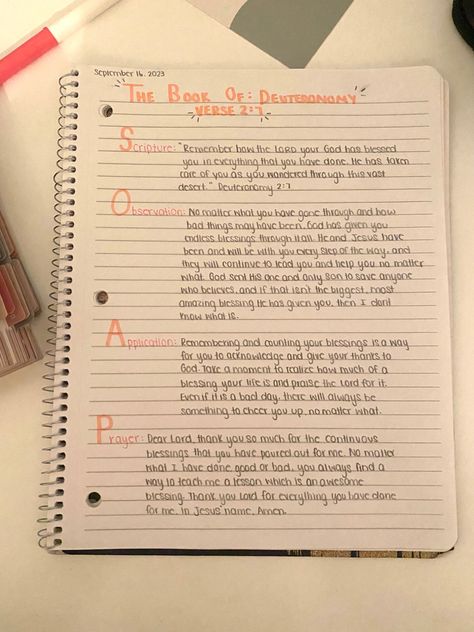 September 16, 2023
The Book Of: Deuteronomy
Verse 2:7
Scripture: "Remember how the LORD your God has blessed
you in everything that you have done. He has taken
care of you as you wandered through this vast
desert." Deuteronomy 2:7
Observation: No matter what you have gone through and how
bad things may have been, God has given you
endless blessings through it all. He and Jesus have
been and will be with you every step of the way, and
they will continue to lead you and help you no matter
what. God sent His one and only son to save anyone
who believes, and if that isn't the biggest, most
amazing blessing He has given you, then I don't
know what is.
Application: Remembering and counting your blessings is a way
for you to acknowledge and give your thanks to
God. Take a moment to realize how much of a
blessing your life is and praise the Lord for it.
Even if it is a bad day, there will always be
something to cheer you up, no matter what.
Prayer: Dear Lord, thank you so much for the continuous
blessings that you have poured out for me. No matter
what I have done good or bad, you always find a
way to teach me a lesson which is an awesome
blessing. Thank you Lord for everything you have done
for me. In Jesus' name, Amen.